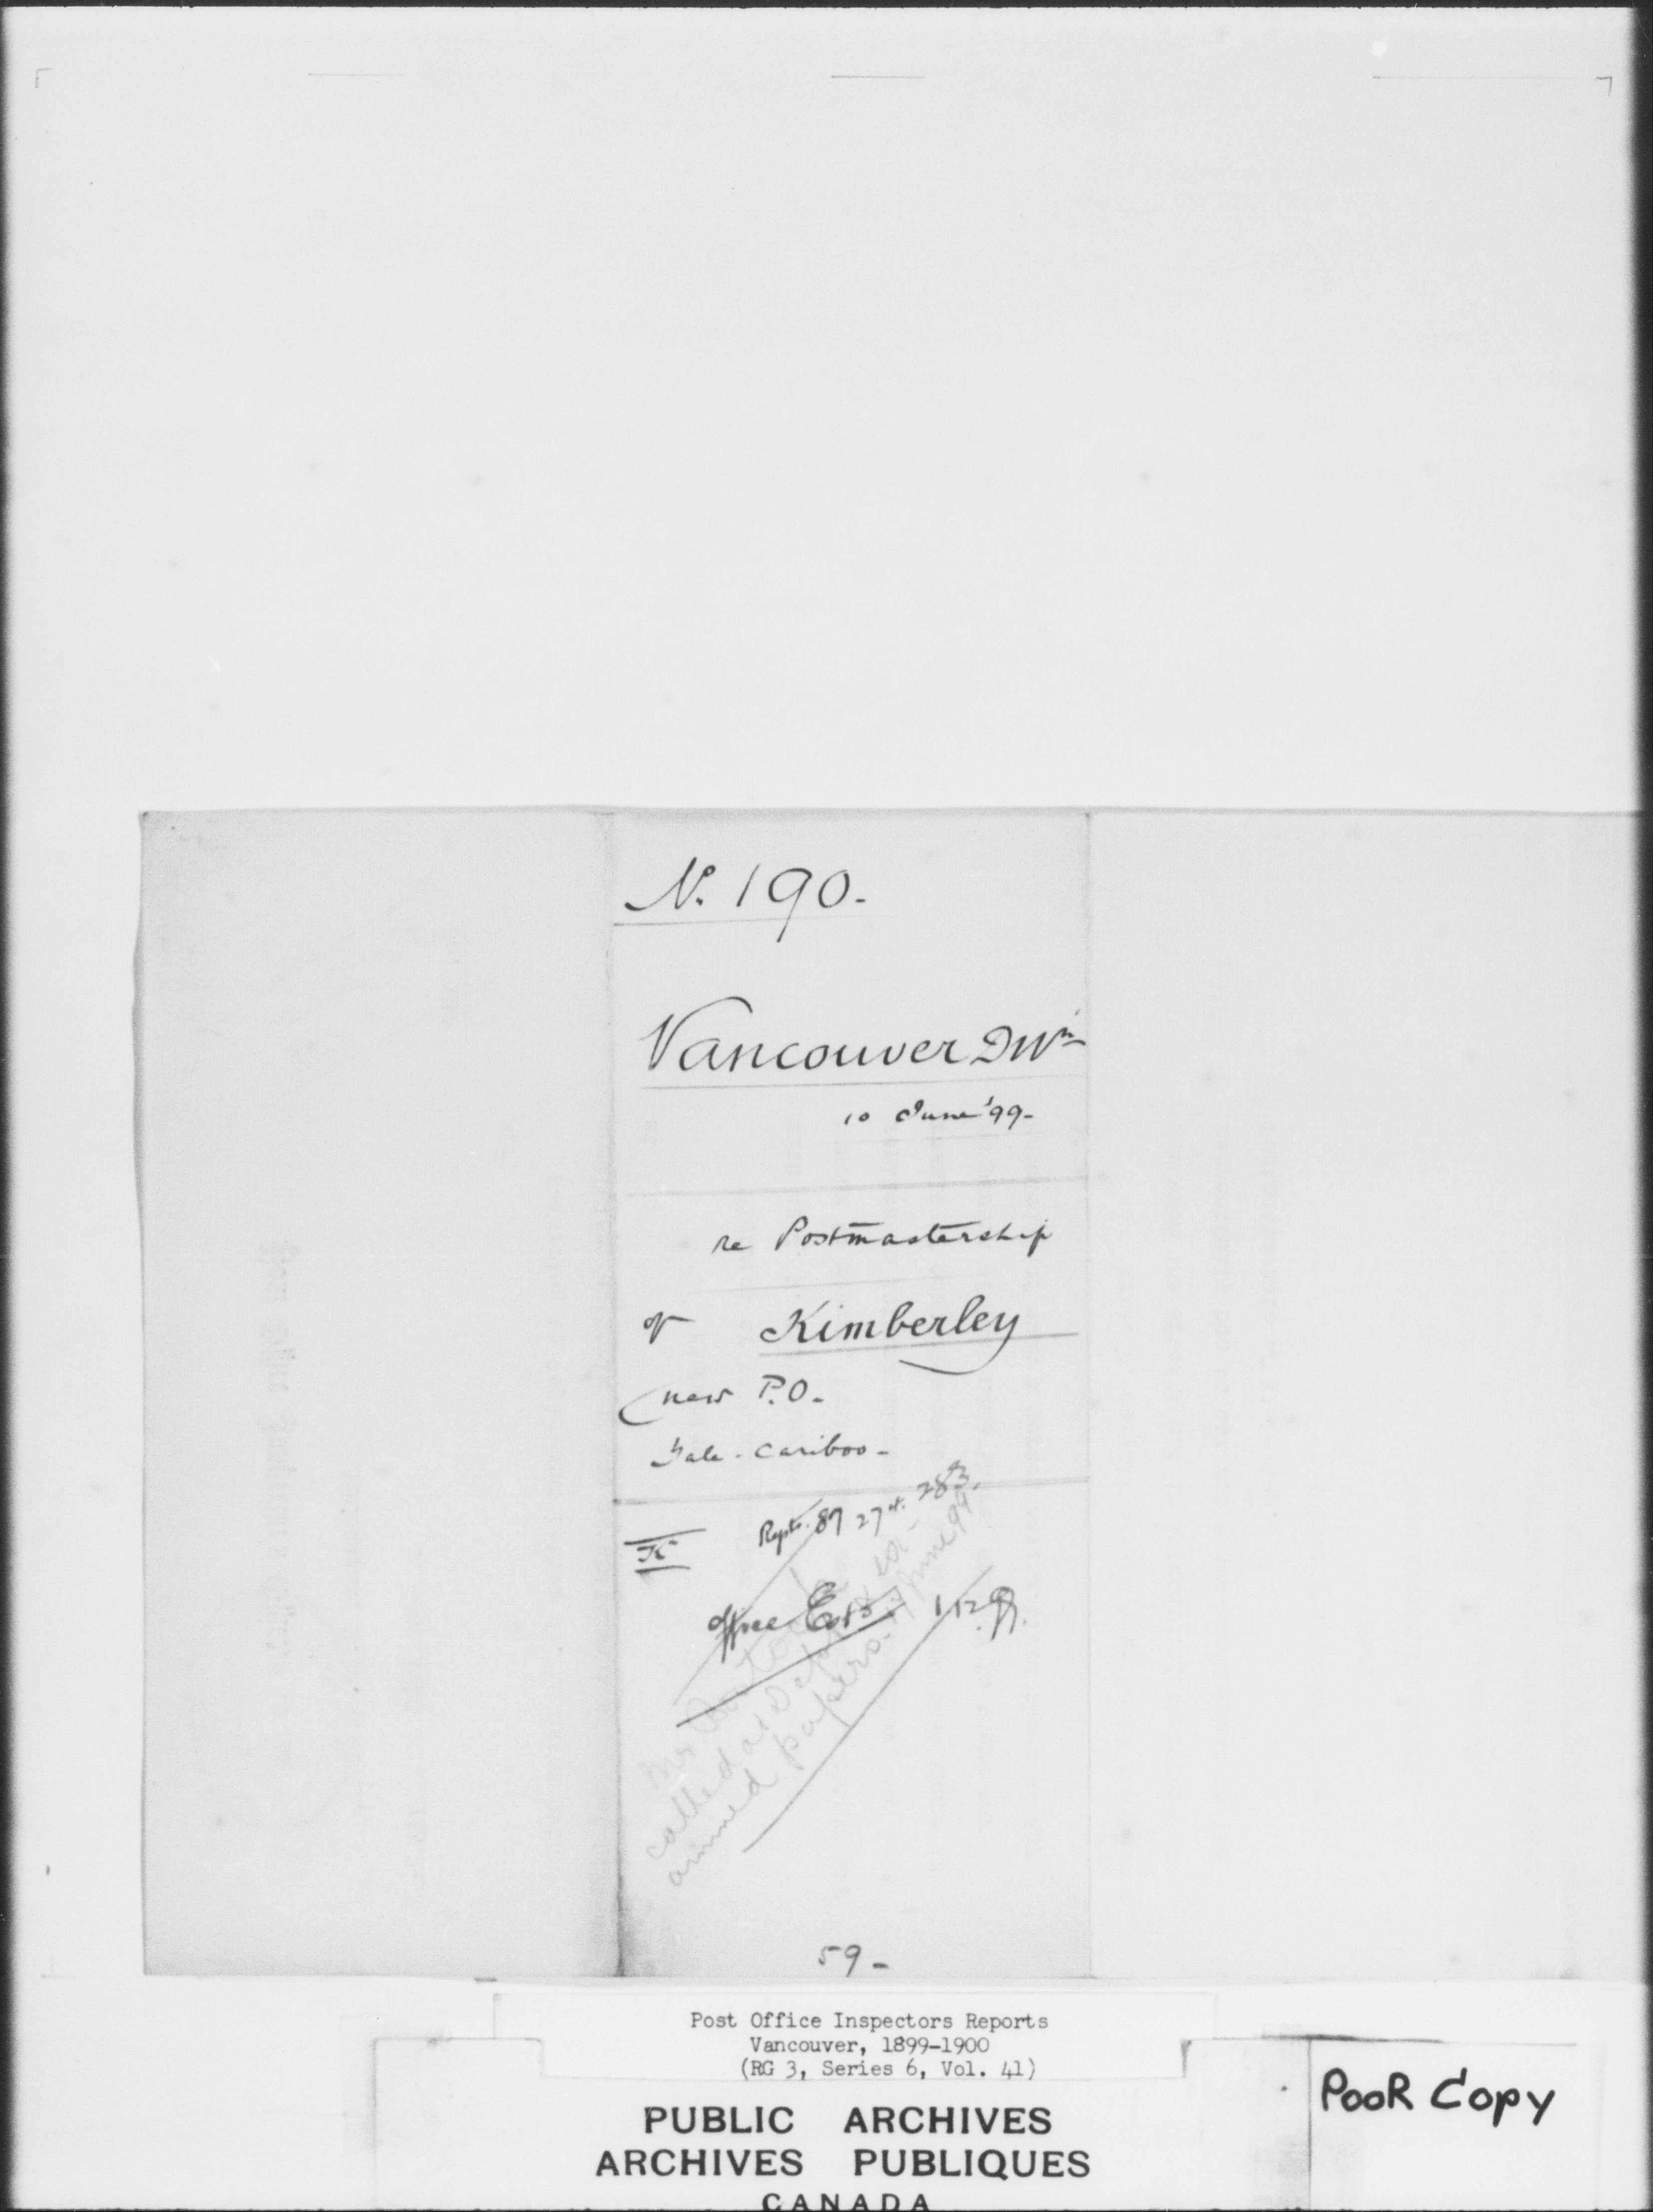 No. 190.
Vancouver Dwn
10 June '99-
re Postmastership
of Kimberley
(new P.O.
Yale-Cariboo-
K
Repts. 87 27 4. 283.
Office Estd. 1.12.99.
Mr.
called at Dept.
papers. June 99
59-
Post Office Inspectors Reports
Vancouver, 1899-1900
(RG 3, Series 6, Vol. 41)
PUBLIC ARCHIVES
ARCHIVES PUBLIQUES
CANADA
POOR COPY